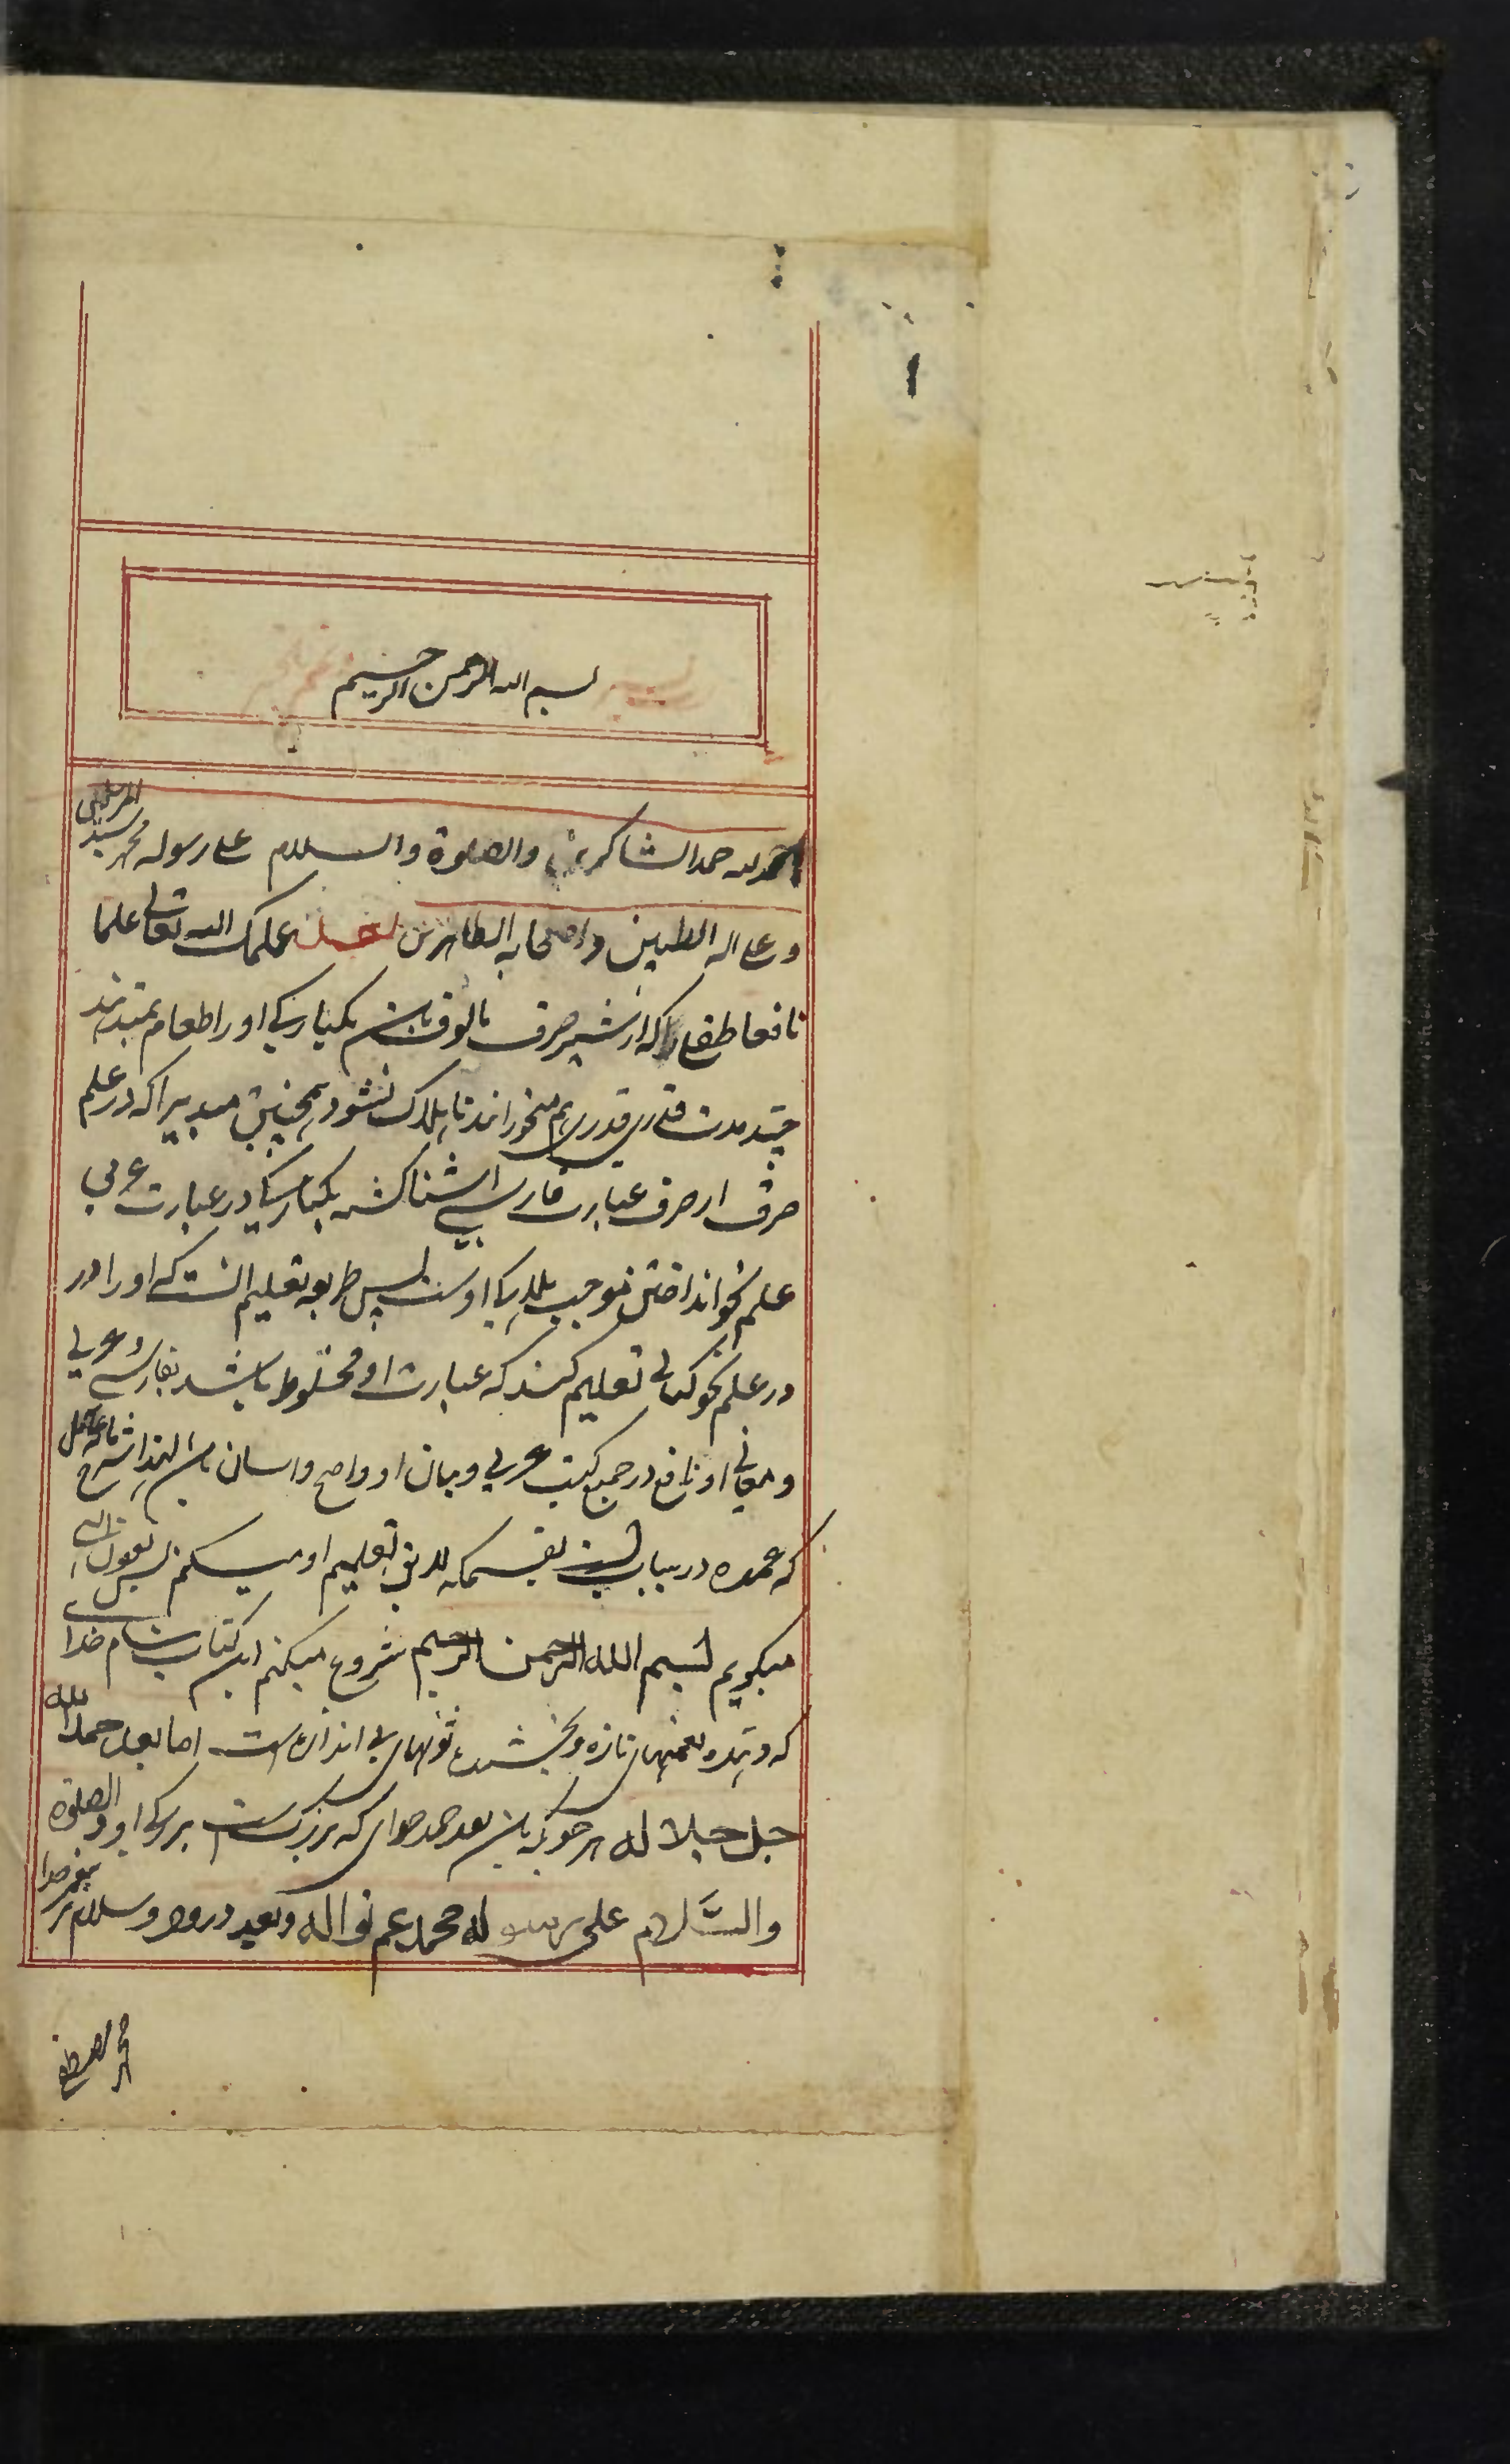 بسم الله الرحمن الرحیم
الحمد لله حمد الشاکرین والصلوة والسلام علی رسوله محمد سید المرسلین
و علی اله الطیبین و اصحابه الطاهرین علمک الله تعالی علما
نافعا طفلی را که از شیر صرف مالوف باشد یکبارکی او را طعام نمیدهند
چند مدت قدری قدری هم میخورانند تا هلاک نشود همچنین مبدیرا که در علم
صرف از صرف عبارت فارسی اشنا کشته یکبارکی در عبارت عربی
علم نحو انداختن موجب هلاکی اوست پس طریقه تعلیم انست که او را در
در علم نحو کتابی تعلیم کنند که عبارت او مخلوط باشد بفارسی و عربی
و معانی او نافع در جمیع کتب عربی و بیان او واضح و اسان باشد لهذا شرح مائة عامل
که عمده درین باب است بقسمیکه لایق تعلیم او میکنم پس بعون الهی
میکویم بسم الله الرحمن الرحیم شروع میکنم این کتاب بنام خدای
که دهنده نعمتهای تازه و بخشنده ثوابهای بی اندازه است اما بعد حمد الله
جل جلاله هر چونکه باشد بعد حمد خدای که بزرکست بزرکی او والصلوة
والسلام علی رسوله محمد عم نواله و بعد درود و سلام بر پیغمبر خدا
محمد مصطفی